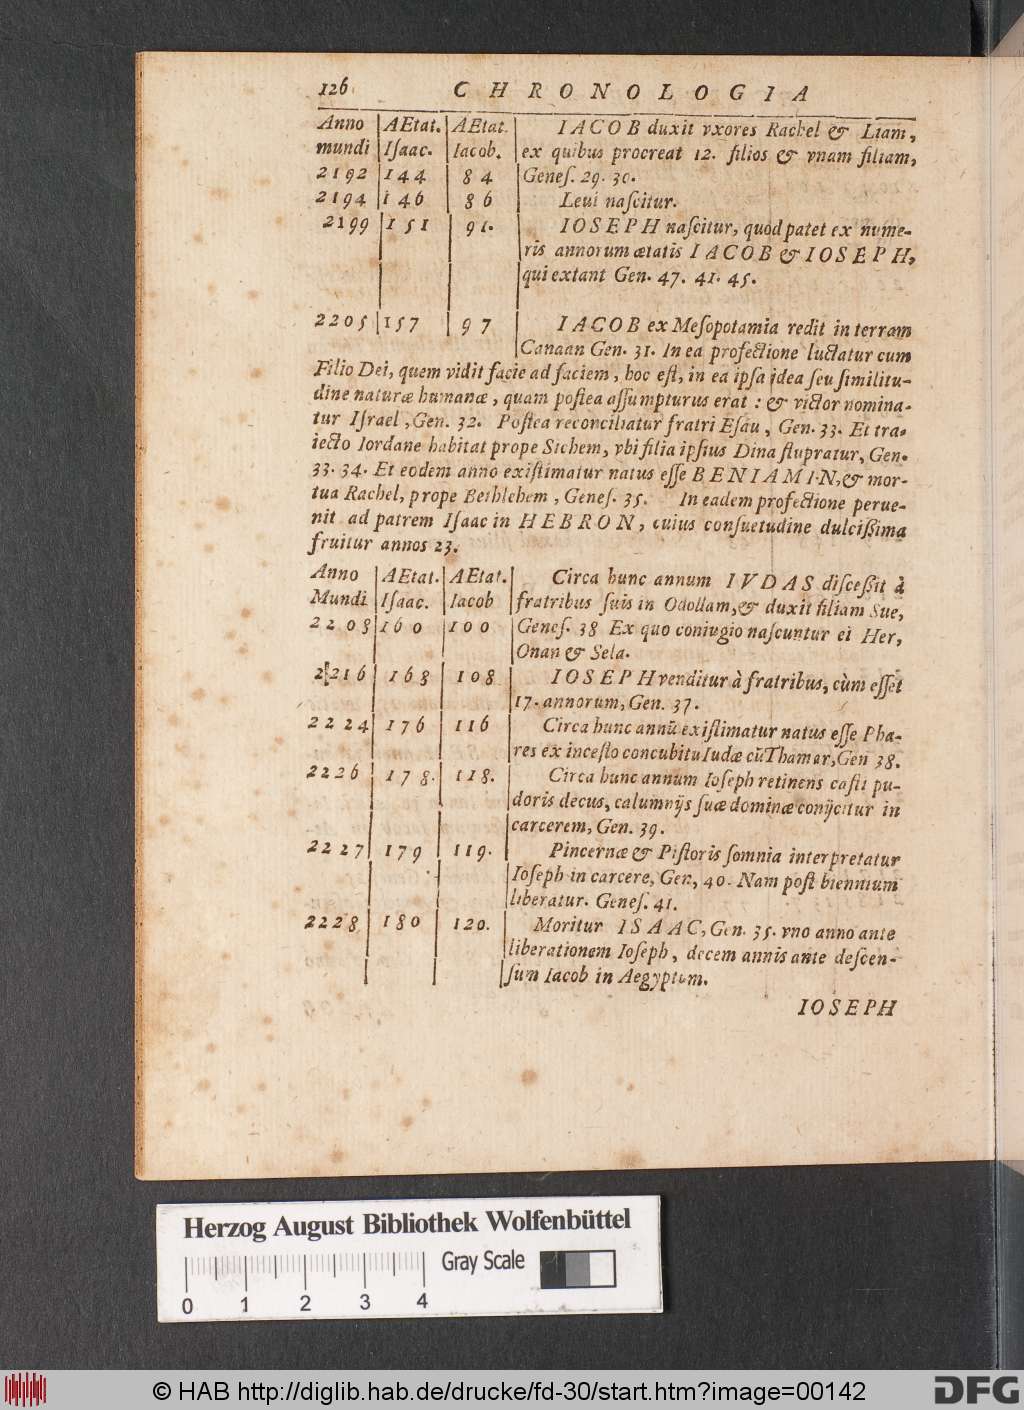 126 CHRONOLOGIA
Anno | AEtat. | AEtat. | IACOB duxit vxores Rachel & Liam,
mundi | Iſaac. | Iacob. | ex quibus procreat 12. filios & vnam filiam,
2192 | 144 | 84 | Geneſ. 29. 30.
2194 | 146 | 86 | Leui naſcitur.
2199 | 151 | 91. | IOSEPH naſcitur, quod patet ex nume-
ris annorum ætatis IACOB & IOSEPH,
qui extant Gen. 47. 41. 45.
2205 | 157 | 97 | IACOB ex Meſopotamia redit in terram
Canaan Gen. 31. In ea profectione luctatur cum
Filio Dei, quem vidit facie ad faciem, hoc eſt, in ea ipſa idea ſeu ſimilitu-
dine naturæ humanæ, quam poſtea aſſumpturus erat: & victor nomina-
tur Iſrael, Gen. 32. Poſtea reconciliatur fratri Eſau, Gen. 33. Et tra-
iecto Iordane habitat prope Sichem, vbi filia ipſius Dina ſtupratur, Gen.
33. 34. Et eodem anno exiſtimatur natus eſſe BENIAMIN, & mor-
tua Rachel, prope Bethlehem, Geneſ. 35. In eadem profectione perue-
nit ad patrem Iſaac in HEBRON, cuius conſuetudine dulciſſima
fruitur annos 23.
Anno | AEtat. | AEtat. | Circa hunc annum IVDAS diſceſſit à
Mundi | Iſaac. | Iacob | fratribus ſuis in Odollam, & duxit filiam Sue,
2208 | 160 | 100 | Geneſ. 38 Ex quo coniugio naſcuntur ei Her,
Onan & Sela.
2216 | 168 | 108 | IOSEPH venditur à fratribus, cùm eſſet
17. annorum, Gen. 37.
2224 | 176 | 116 | Circa hunc annū exiſtimatur natus eſſe Pha-
res ex inceſto concubitu Iudæ cū Thamar, Gen 38.
2226 | 178. | 118. | Circa hunc annum Ioſeph retinens caſti pu-
doris decus, calumnijs ſuæ dominæ conijcitur in
carcerem, Gen. 39.
2227 | 179 | 119. | Pincernæ & Piſtoris ſomnia interpretatur
Ioſeph in carcere, Gen, 40. Nam poſt biennium
liberatur. Geneſ. 41.
2228 | 180 | 120. | Moritur ISAAC, Gen. 35. vno anno ante
liberationem Ioſeph, decem annis ante deſcen-
ſum Iacob in Aegyptum.
IOSEPH
Herzog August Bibliothek Wolfenbüttel
Gray Scale
0 1 2 3 4
© HAB http://diglib.hab.de/drucke/fd-30/start.htm?image=00142
DFG